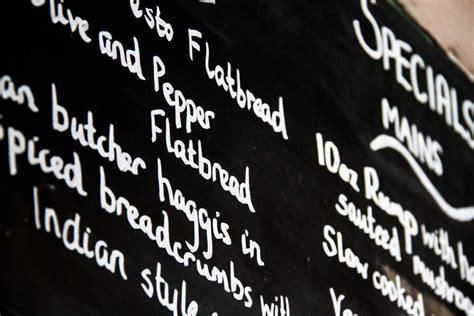 Flatbread
Olive and Pepper
Flatbread
butcher haggis in
spiced breadcrumbs with
Indian style
SPECIALS
MAINS
10oz Rump with
sauteed
Slow cooked